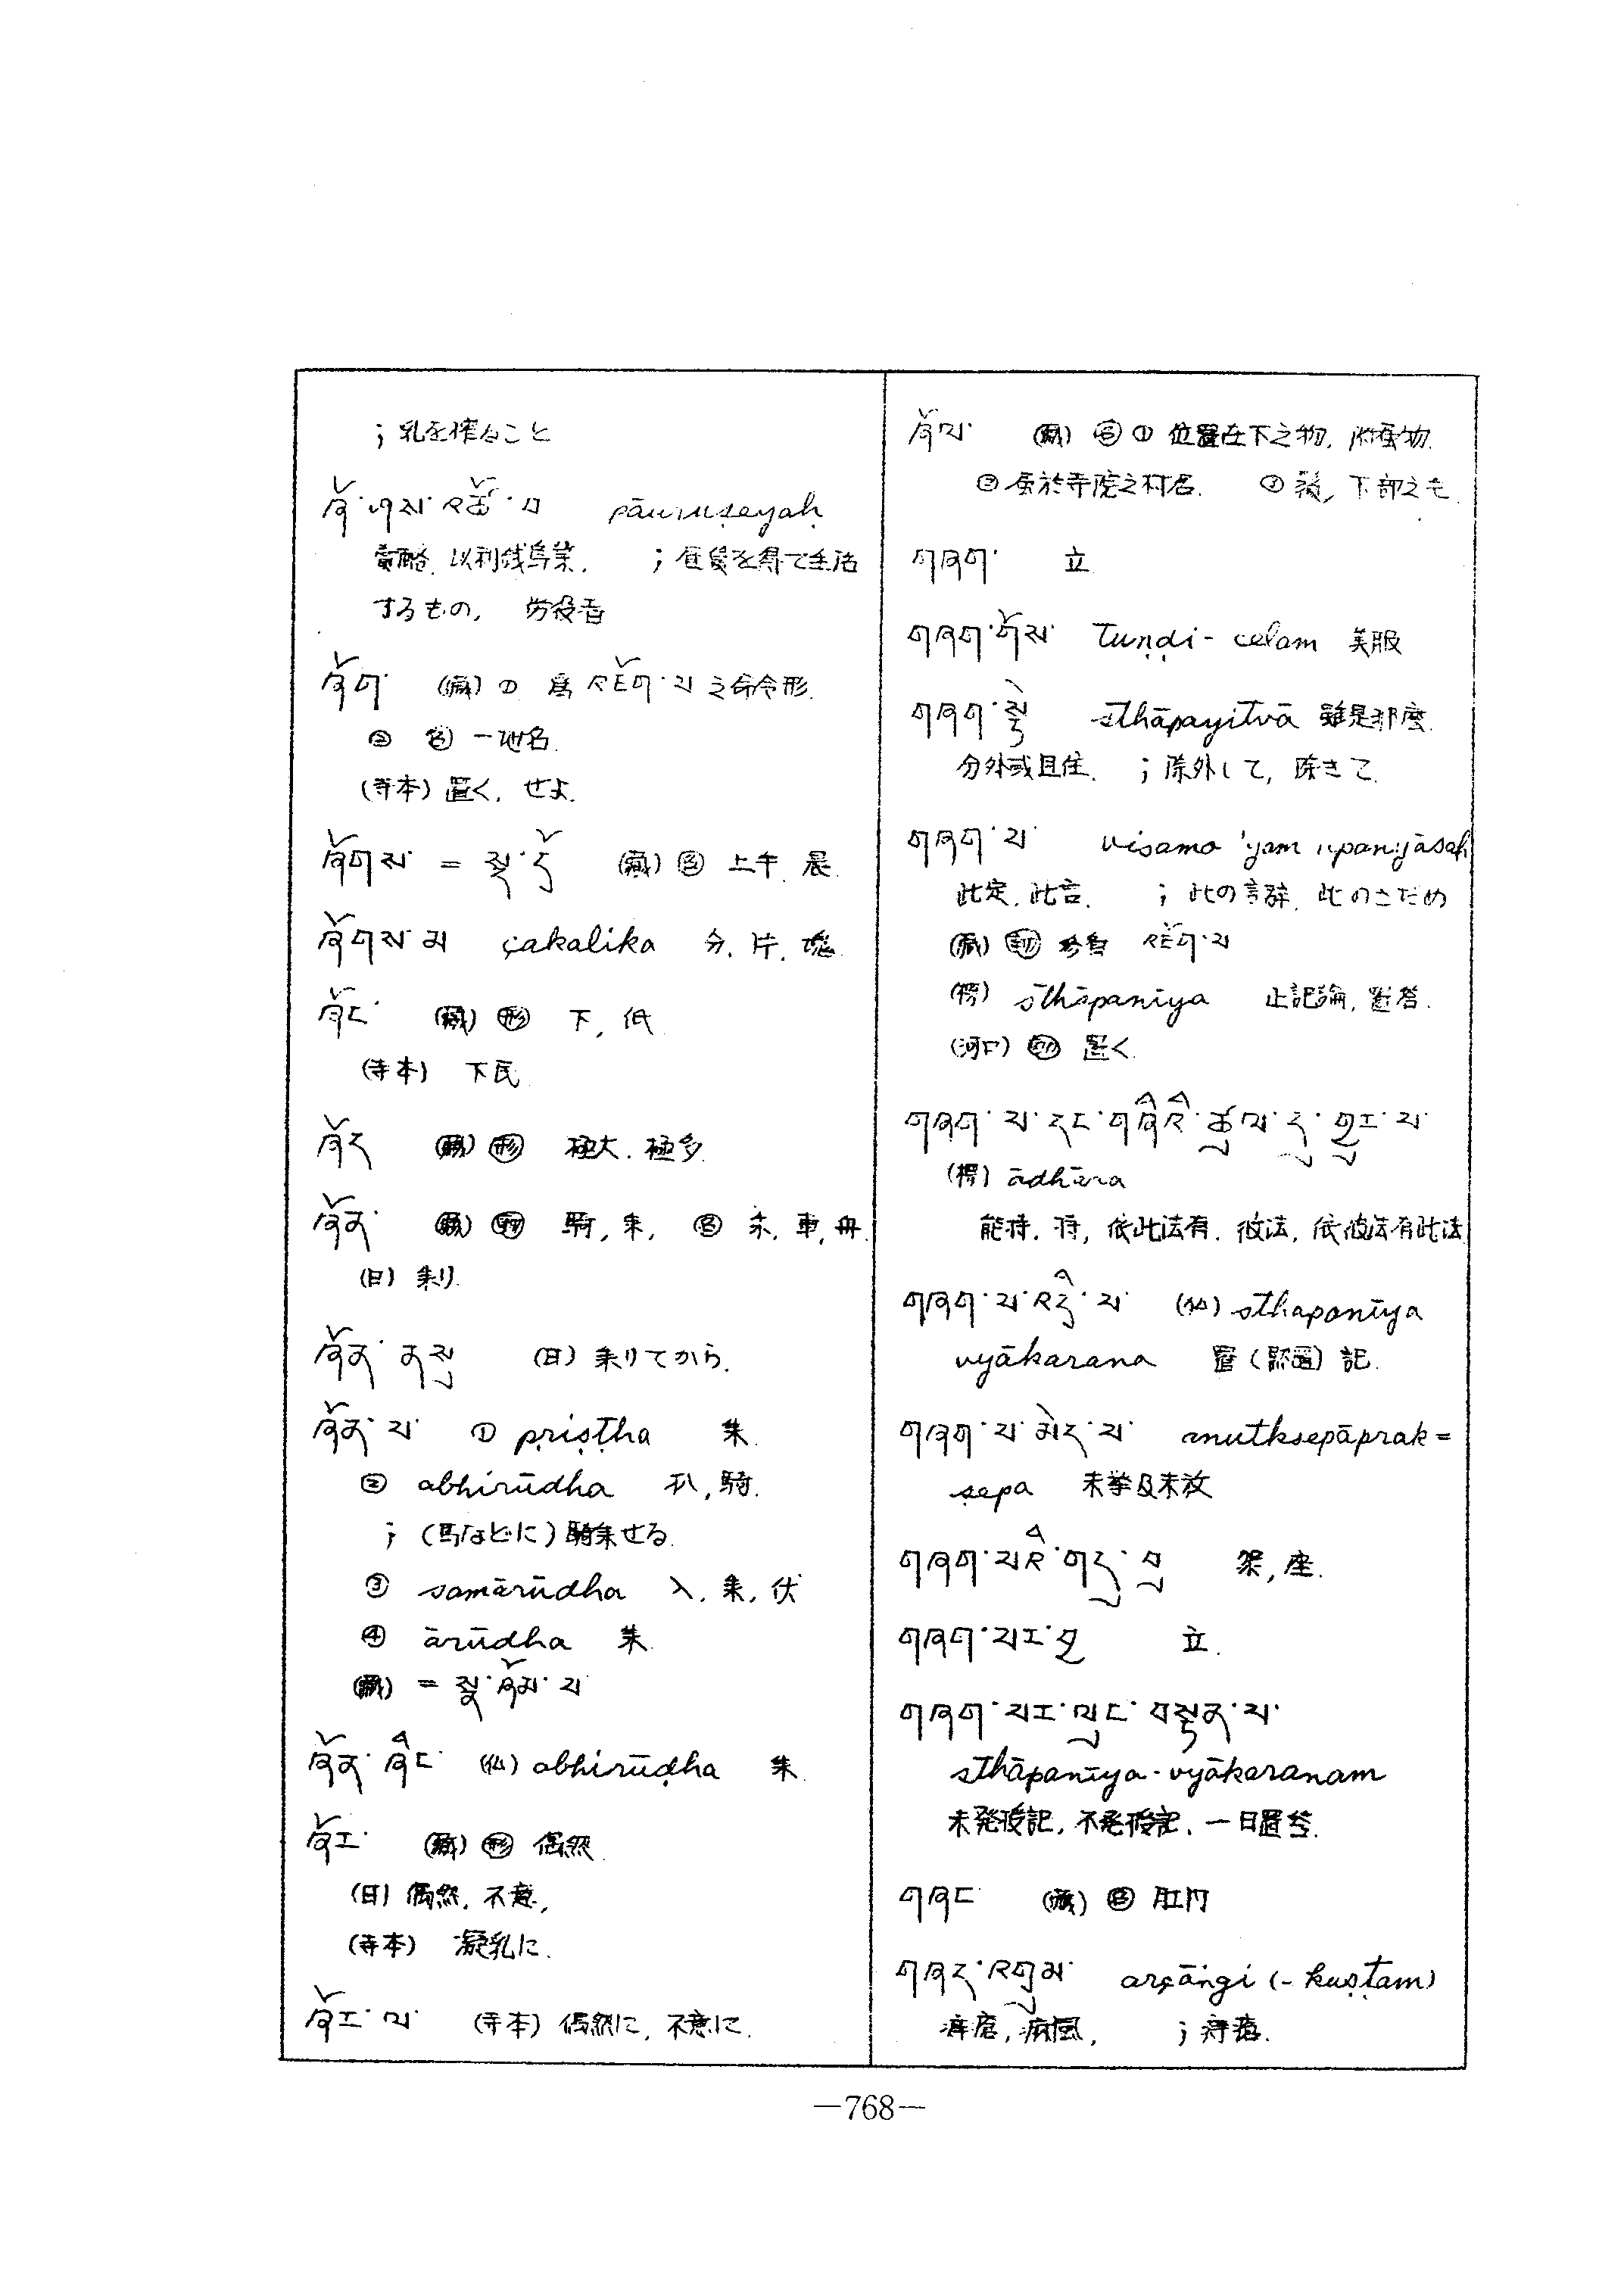 ；乳を搾ること
ཞོ་ཤས་འཚོ་བ pauruṣeyaḥ
以利銭為業. ；賃銀を得て生活
するもの, 労役者
ཞོག་ (蔵) ① 為 འཇོག་པ 之命令形.
② 名 一地名.
(寺本) 置く, せよ.
ཞོགས་ = སྔ་དྲོ (蔵) 名 上午, 晨.
ཞོགས་མ çakalika 分, 片, 塊.
ཞོང་ (蔵) 形 下, 低
(寺本) 下民
ཞོད (蔵) 形 極大. 極多.
ཞོན་ (蔵) 動 騎, 乗, 名 乗, 車, 舟.
(日) 乗り.
ཞོན་ནས (日) 乗りてから.
ཞོན་པ ① priṣṭha 乗.
② abhirūdha 趴, 騎.
；(馬などに) 騎乗せる.
③ samārūdha 入, 乗, 伏
④ ārūdha 乗.
(蔵) =
ཞོན་ཞིང (仙) abhirūḍha 乗.
ཞོར་ (蔵) 形 偶然.
(日) 偶然, 不意,
(寺本) 凝乳に.
ཞོར་ལ་ (寺本) 偶然に, 不意に.
ཞོལ་ (蔵) 名 ① 位置在下之物, 附属物.
② 属於寺院之村名. ③ 鬚, 下部之毛.
གཞག་ 立
གཞག་གོས་ tuṇḍi-celam 美服
གཞག་སྟེ sthāpayitvā 雖是那麼.
分外或且住. ；除外して, 除きて.
གཞག་པ visamo 'yam upanyāsaḥ
此定, 此言. ；此の言辞, 此のさだめ
(蔵) 動 参看 འཇོག་པ
(榜) sthāpanīya 止記論, 置答.
(河口) 動 置く.
གཞག་པ་དང་གཞིའི་ཚུལ་དུ་གྱུར་པ
(榜) ādhāra
能持, 持, 依此法有, 彼法, 依彼法有此法
གཞག་པ་འདི་པ (仙) sthapanīya
vyākarana 置 (黙置) 記.
གཞག་པ་མེད་པ་ anutksepāprak=
ṣepa 未挙及未放
གཞག་པའི་གདུ་བུ 架, 座.
གཞག་པར་བྱ 立.
གཞག་པར་ལུང་བསྟན་པ་
sthāpanīya-vyākaranam
未発授記, 不発授記, 一日置答.
གཞང (蔵) 名 肛門
གཞད་འགུམ་ arçāngi (-kuṣṭam)
；痔瘡.
—768—